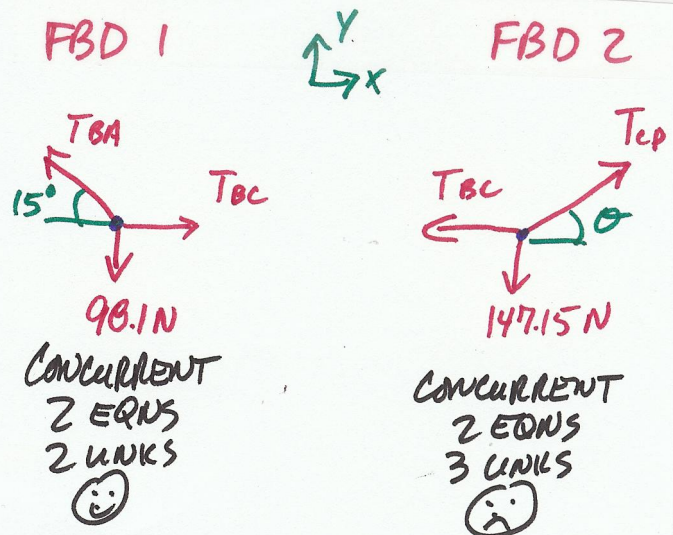 FBD 1
Y
X
FBD 2
TBA
15°
TBC
98.1N
CONCURRENT
2 EQNS
2 UNKS
TCD
TBC
θ
147.15 N
CONCURRENT
2 EQNS
3 UNKS